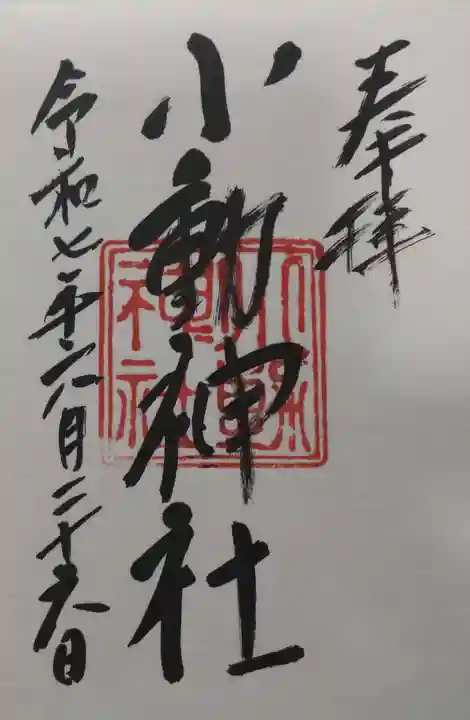 奉拝
小動神社
神社
令和七年六月二十六日